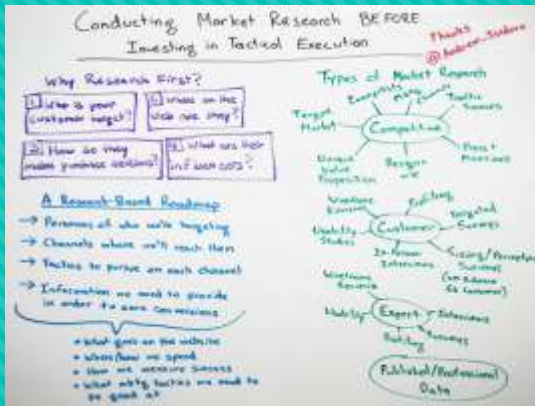 Conducting Market Research BEFORE
Investing in Tactical Execution
Thanks
Why Research First?
1 Who is your
customer target?
2 Where on the
web are they?
3 How do they
make purchase decisions?
4 What are their
influencers?
A Research-Based Roadmap
→ Personas of who we're targeting
→ Channels where we'll reach them
→ Tactics to pursue on each channel
→ Information we need to provide
in order to earn conversions
• What goes on the website
• Where/how we spend
• How we measure success
• What mktg tactics we need to
be good at
Types of Market Research
Competitive
Target
Market
Traffic
Sources
Unique
Value
Proposition
Customer
Profiling
Targeted
Surveys
Usability
Studies
In-Person
Interviews
Sizing/Perception
Surveys
Expert
Wireframe
Reviews
Usability
Interviews
Surveys
Published/Professional
Data